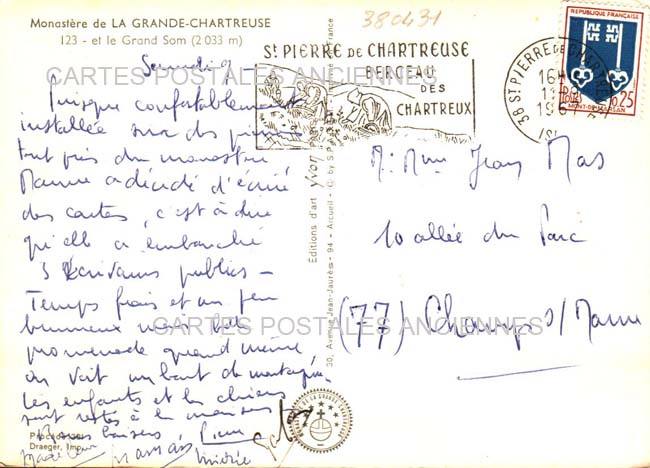 Monastère de LA GRANDE-CHARTREUSE
123 - et le Grand Som (2 033 m)
380431
Samedi 9 -
Presque confortablement
installée sur des pierres
tout près du monastère
Mamie a décidé d'écrire
des cartes, c'est à dire
qu'elle a embauché
3 Écrivains publics -
Temps frais et un peu
brumeux mais
promenade quand même
on voit un bout de montagne
Les enfants et les chiens
sont restés à la maison
Bons baisers
Maman
CARTES POSTALES ANCIENNES
CARTES POSTALES ANCIENNES
Procédé
Draeger, Imp.
Éditions d'art yvon
30, Avenue Jean-Jaurès - 94 - Arcueil
St PIERRE DE CHARTREUSE
BERCEAU
DES
CHARTREUX
38 ST PIERRE DE CHARTREUSE
16H
196
ISÈRE
REPUBLIQUE FRANÇAISE
POSTES
0,25
MONT-DE-MARSAN
M. Mme Jean Mas
10 allée du Parc
(77) Champs s/ Marne